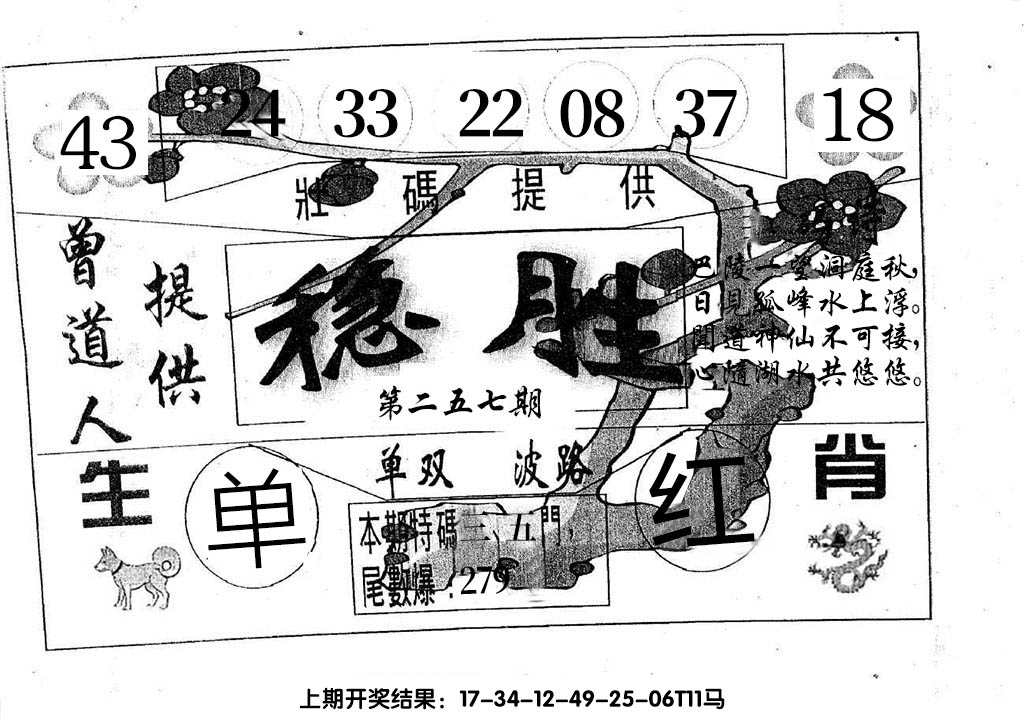 43 24 33 22 08 37 18
壯碼提供
曾道人
提供
稳胜
第二五七期
巴陵一望洞庭秋，
日見孤峰水上浮。
聞道神仙不可接，
心隨湖水共悠悠。
单双 波路
生肖
单
红
本期特碼三、五門，
尾數爆：279
上期开奖结果：17-34-12-49-25-06T11马